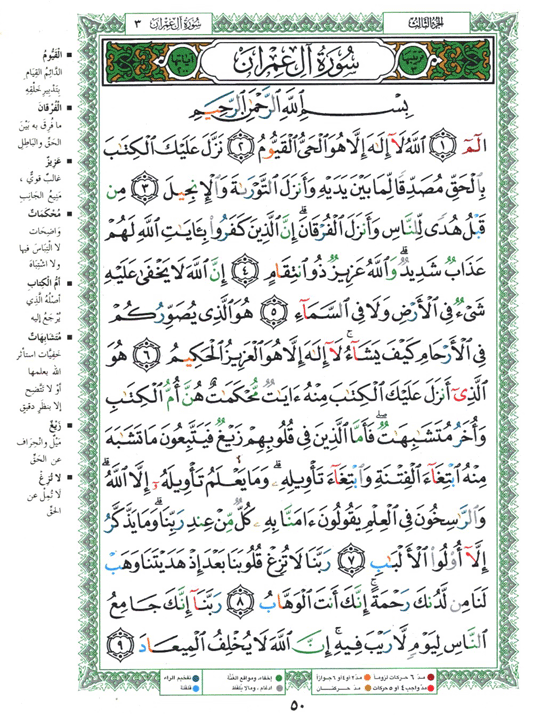 الجزء الثالث
سُورَةُ آلِ عِمْرَان ٣
سُورَةُ آلِ عِمْرَانَ
ترتيبها ٣
آياتها ٢٠٠
بِسْمِ ٱللَّهِ ٱلرَّحْمَٰنِ ٱلرَّحِيمِ
الٓمٓ ١ ٱللَّهُ لَآ إِلَٰهَ إِلَّا هُوَ ٱلْحَىُّ ٱلْقَيُّومُ ٢ نَزَّلَ عَلَيْكَ ٱلْكِتَٰبَ
بِٱلْحَقِّ مُصَدِّقًا لِّمَا بَيْنَ يَدَيْهِ وَأَنزَلَ ٱلتَّوْرَىٰةَ وَٱلْإِنجِيلَ ٣ مِن
قَبْلُ هُدًى لِّلنَّاسِ وَأَنزَلَ ٱلْفُرْقَانَ ۗ إِنَّ ٱلَّذِينَ كَفَرُوا۟ بِـَٔايَٰتِ ٱللَّهِ لَهُمْ
عَذَابٌ شَدِيدٌ ۗ وَٱللَّهُ عَزِيزٌ ذُو ٱنتِقَامٍ ٤ إِنَّ ٱللَّهَ لَا يَخْفَىٰ عَلَيْهِ
شَىْءٌ فِى ٱلْأَرْضِ وَلَا فِى ٱلسَّمَآءِ ٥ هُوَ ٱلَّذِى يُصَوِّرُكُمْ
فِى ٱلْأَرْحَامِ كَيْفَ يَشَآءُ ۚ لَآ إِلَٰهَ إِلَّا هُوَ ٱلْعَزِيزُ ٱلْحَكِيمُ ٦ هُوَ
ٱلَّذِىٓ أَنزَلَ عَلَيْكَ ٱلْكِتَٰبَ مِنْهُ ءَايَٰتٌ مُّحْكَمَٰتٌ هُنَّ أُمُّ ٱلْكِتَٰبِ
وَأُخَرُ مُتَشَٰبِهَٰتٌ ۖ فَأَمَّا ٱلَّذِينَ فِى قُلُوبِهِمْ زَيْغٌ فَيَتَّبِعُونَ مَا تَشَٰبَهَ
مِنْهُ ٱبْتِغَآءَ ٱلْفِتْنَةِ وَٱبْتِغَآءَ تَأْوِيلِهِۦ ۗ وَمَا يَعْلَمُ تَأْوِيلَهُۥٓ إِلَّا ٱللَّهُ ۗ
وَٱلرَّٰسِخُونَ فِى ٱلْعِلْمِ يَقُولُونَ ءَامَنَّا بِهِۦ كُلٌّ مِّنْ عِندِ رَبِّنَا ۗ وَمَا يَذَّكَّرُ
إِلَّآ أُو۟لُوا۟ ٱلْأَلْبَٰبِ ٧ رَبَّنَا لَا تُزِغْ قُلُوبَنَا بَعْدَ إِذْ هَدَيْتَنَا وَهَبْ
لَنَا مِن لَّدُنكَ رَحْمَةً ۚ إِنَّكَ أَنتَ ٱلْوَهَّابُ ٨ رَبَّنَآ إِنَّكَ جَامِعُ
ٱلنَّاسِ لِيَوْمٍ لَّا رَيْبَ فِيهِ ۚ إِنَّ ٱللَّهَ لَا يُخْلِفُ ٱلْمِيعَادَ ٩
■ الْقَيُّومُ
الدَّائِمُ القِيَام
بِتَدْبِيرِ خَلْقِهِ
■ الْفُرْقَانَ
ما فُرِقَ به بَيْنَ
الحَقِّ والبَاطِلِ
■ عَزِيزٌ
غالبٌ قويٌّ ،
مَنِيعُ الجَانِبِ
■ مُحْكَمَاتٌ
وَاضِحَات
لا الْتِبَاسَ فيها
ولا اشْتِبَاه
■ أمُّ الْكِتَابِ
أصْلُهُ الَّذِي
يُرْجَعُ إليه
■ مُتَشَابِهَاتٌ
خفِيَّات استأثر
الله بعلمها
أوْ لا تتَّضِح
إلا بنظرٍ دقيق
■ زَيْغٌ
مَيْلٌ وانْحِرَاف
عن الحَقِّ
■ لا تُزِغْ
لا تُمِلْ عن
الحَقِّ
مدّ ٦ حركات لزوماً
مدّ ٢ أو ٤ أو ٦ جوازاً
إخفاء، ومواقع الغُنَّة
تفخيم الراء
مدّ واجب ٤ أو ٥ حركات
مدّ حركتان
ادغام ، وما لا يُلفَظ
قلقلة
٥٠